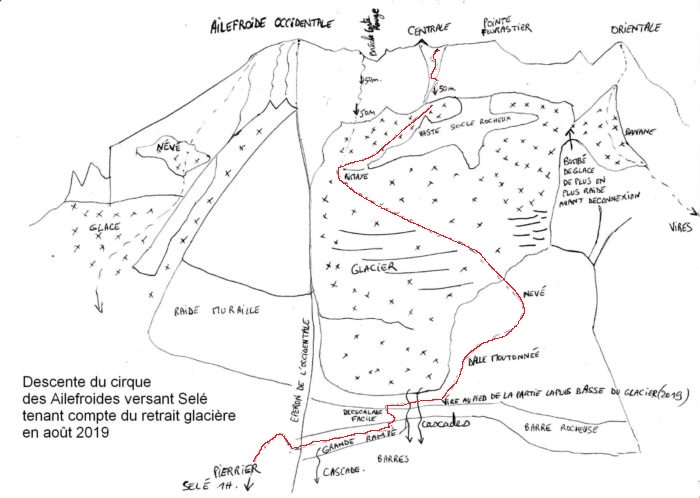 AILEFROIDE OCCIDENTALE
CENTRALE
POINTE
FOURASTIER
ORIENTALE
50m.
50m.
50M
VASTE SOCLE ROCHEUX
BANANE
NÉVÉ
BOMBÉ
DE GLACE
DE PLUS EN
PLUS RAIDE
AVANT DECONNEXION
VIRES
GLACE
GLACIER
NEVÉ
RAIDE MURAILLE
EPERON DE L'OCCIDENTALE
DALLE MOUTONNÉE
Descente du cirque
des Ailefroides versant Selé
tenant compte du retrait glacière
en août 2019
VIRE AU PIED DE LA PARTIE LA PLUS BASSE DU GLACIER (2019)
DEESCALADE
FACILE
cascades
BARRE ROCHEUSE
GRANDE RAMPE
BARRES
CASCADE.
PIERRIER
SELÉ 1H.